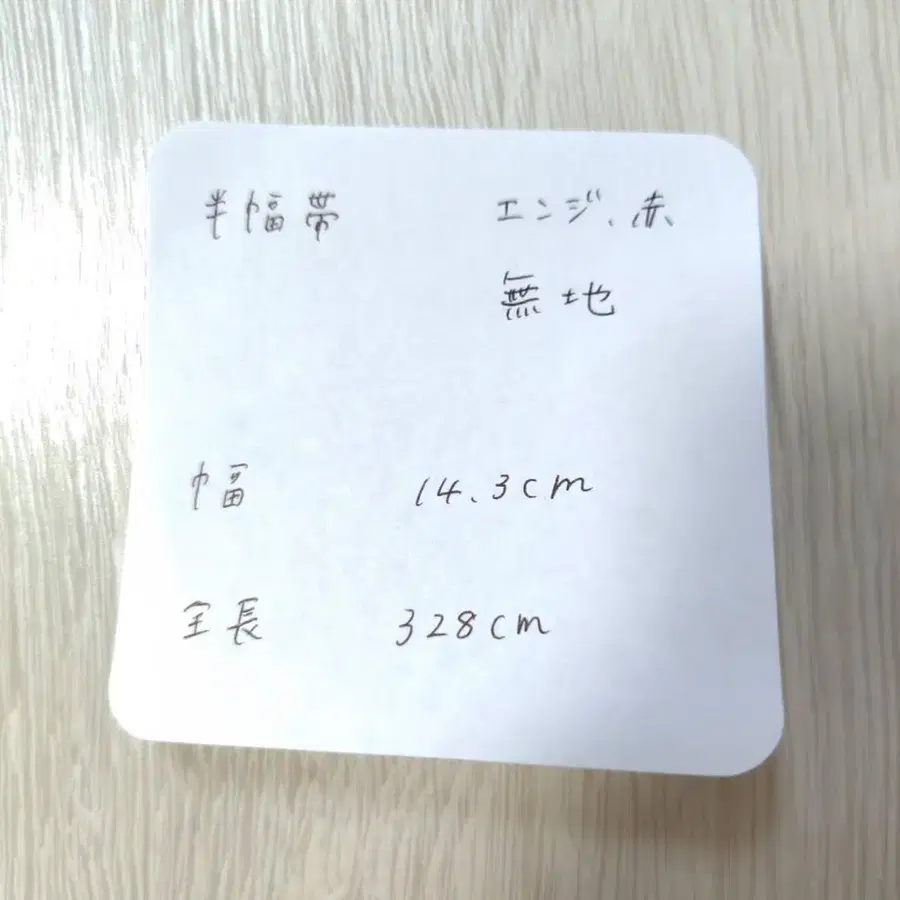 半幅帯 エンジ、赤、
無地
幅 14.3cm
全長 328cm